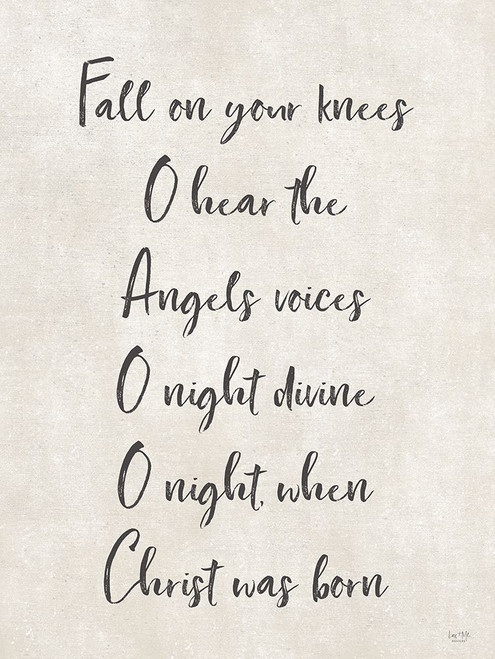 Fall on your knees
O hear the
Angels voices
O night divine
O night, when
Christ was born